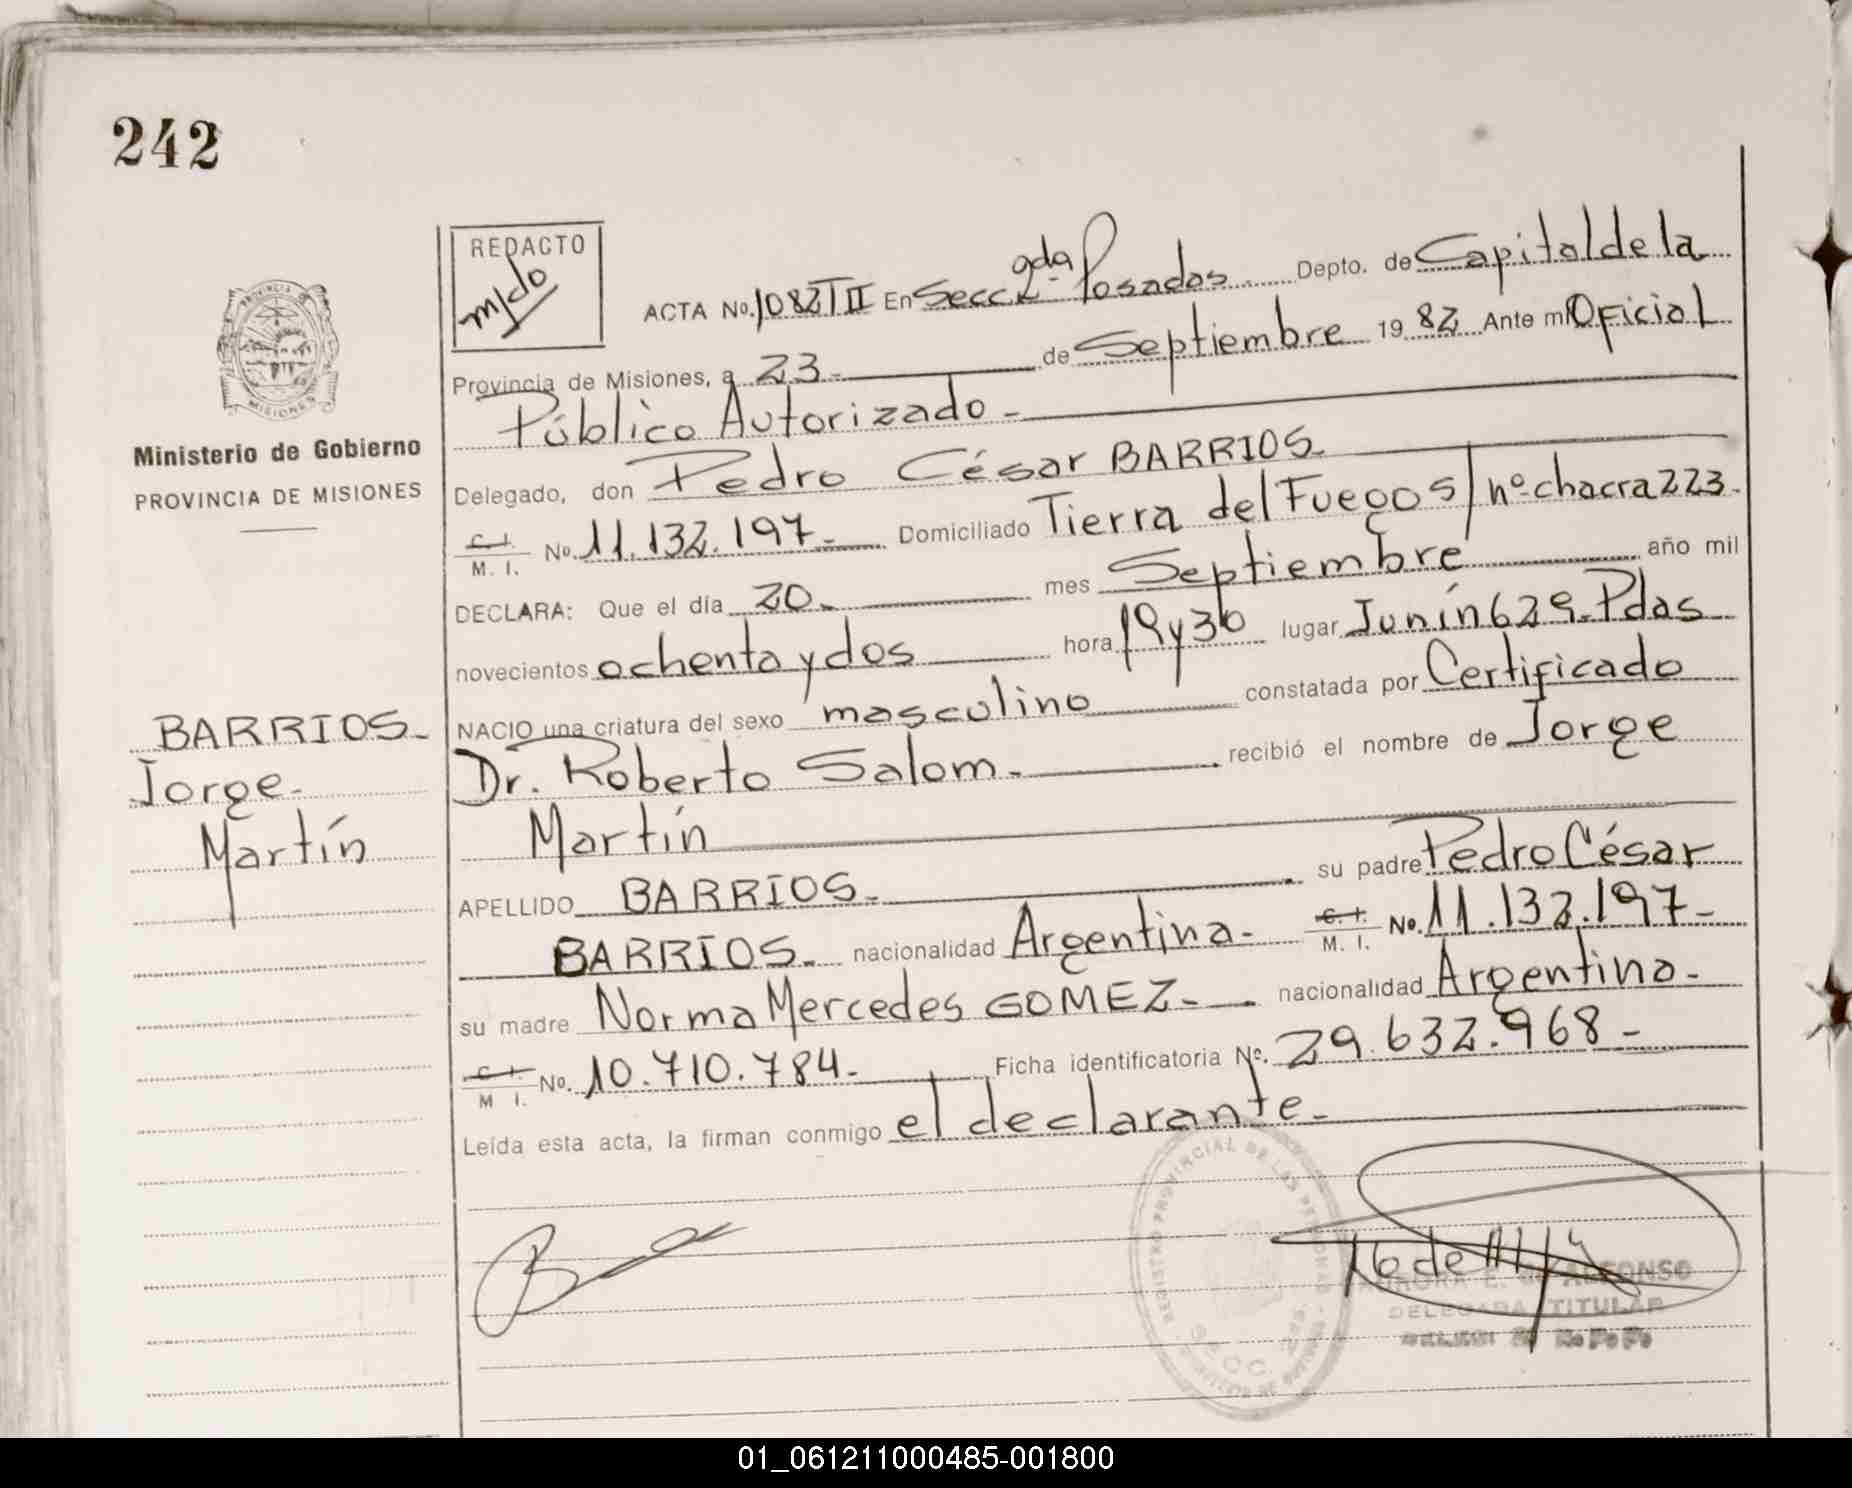 242
REDACTO
m/do
PROVINCIA DE
MISIONES
Ministerio de Gobierno
PROVINCIA DE MISIONES
ACTA No. 1082 T II En Secc 2da Posadas Depto. de Capital de la
Provincia de Misiones, a 23.- de Septiembre 1982 Ante mí Oficial
Público Autorizado -
Delegado, don Pedro César BARRIOS.
C. I. M. I. No. 11.132.197.- Domiciliado Tierra del Fuego s/nº chacra 223.
DECLARA: Que el día 20. mes Septiembre año mil
novecientos ochenta y dos hora 19 y 30 lugar Junín 629. Pdas
NACIO una criatura del sexo masculino constatada por Certificado
Dr. Roberto Salom.- recibió el nombre de Jorge
Martín
APELLIDO BARRIOS.- su padre Pedro César
BARRIOS.- nacionalidad Argentina.- C. I. M. I. No. 11.132.197.-
su madre Norma Mercedes GOMEZ.- nacionalidad Argentina.-
C. I. M I. No. 10.710.784.- Ficha identificatoria No. 29.632.968 -
Leída esta acta, la firman conmigo el declarante.-
BARRIOS.-
Jorge.-
Martín
REGISTRO PROVINCIAL DE LAS PERSONAS
SECC.
ALFONSO
DELEGADA TITULAR
01_061211000485-001800